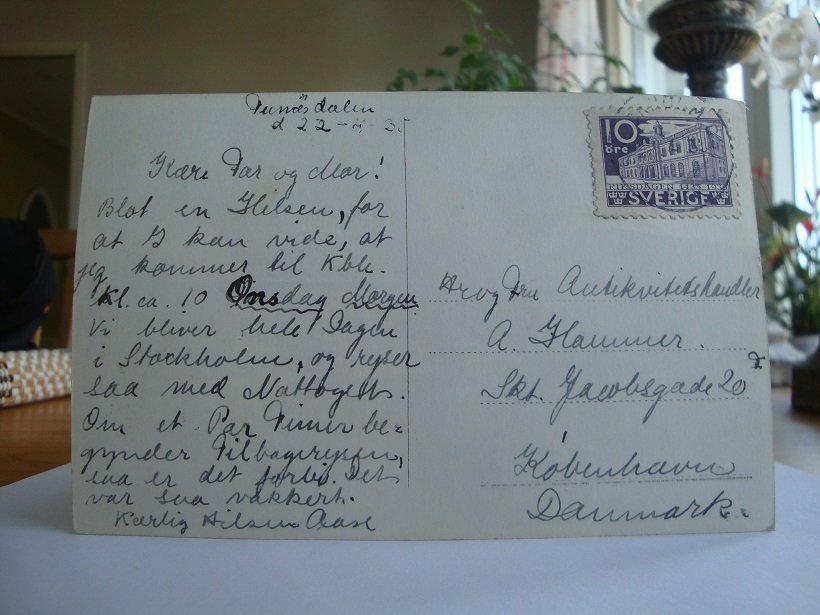 Funäsdalen
d 22-4-35
Kære Far og Mor!
Blot en Hilsen, for
at I kan vide, at
jeg kommer til Kbh.
Kl. ca. 10 Onsdag Morgen.
Vi bliver hele Dagen
i Stockholm, og rejser
saa med Nattoget.
Om et Par Timer be=
gynder Tilbagerejsen,
saa er det forbi. Det
var saa vakkert.
Kærlig Hilsen Aase
10
öre
RIKSDAGEN 1435-1935
SVERIGE
Hr og Fru Antikvitetshandler
A. Hammer.
Skt. Jacobsgade 20
København
Danmark.